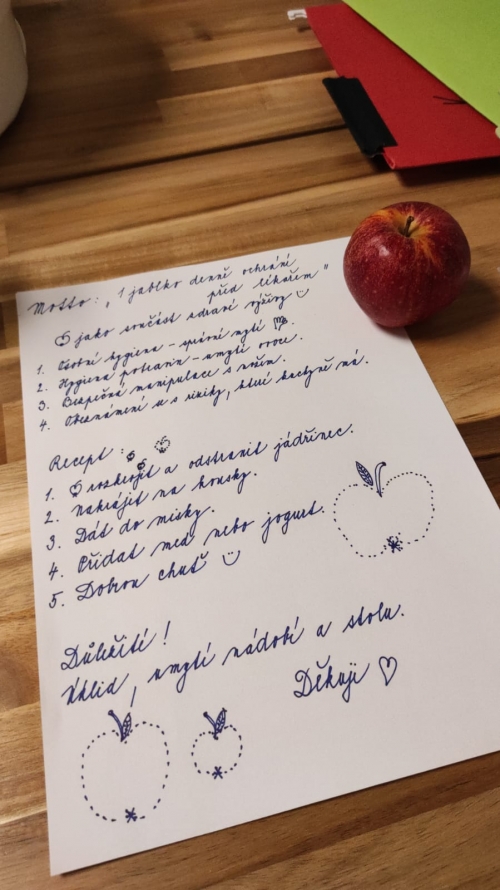 Motto: „1 jablko denně ochrání
před lékařem"
jako součást zdravé výživy
1. Osobní hygiena - správné mytí
2. Hygiena potravin - umytí ovoce.
3. Bezpečná manipulace s nožem.
4. Obeznámení se s riziky, které kuchyně má.
Recept:
1. rozkrojit a odstranit jádřinec.
2. Nakrájet na kousky.
3. Dát do misky.
4. Přidat med nebo jogurt.
5. Dobrou chuť
Důležité!
Úklid, umytí nádobí a stolu.
Děkuji